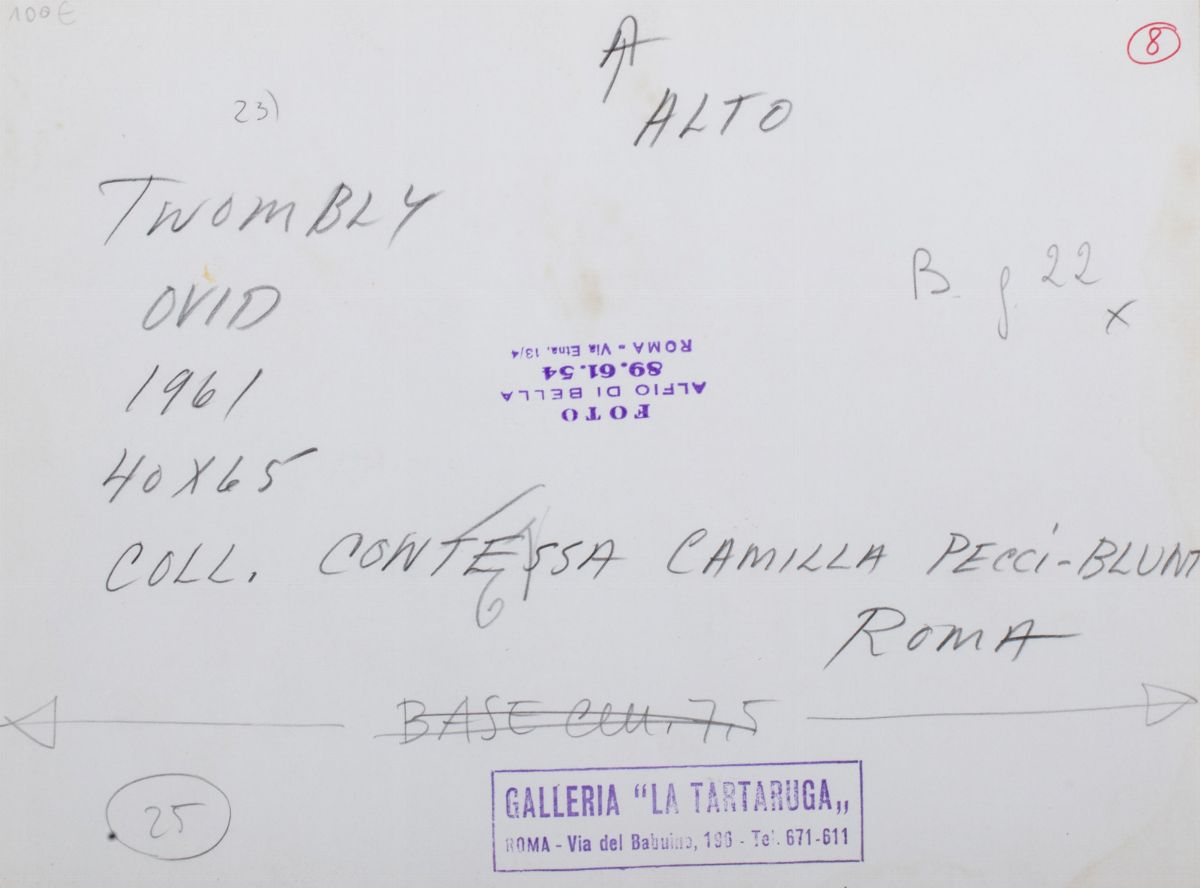 100€
8
ALTO
23)
TWOMBLY
OVID
1961
40X65
COLL. CONTESSA CAMILLA PECCI-BLUNT
ROMA
B. g. 22
x
FOTO
ALFIO DI BELLA
89.61.54
ROMA - Via Etna, 13/4
6
BASE cm. 7,5
25
GALLERIA “LA TARTARUGA„
ROMA - Via del Babuino, 196 - Tel. 671-611